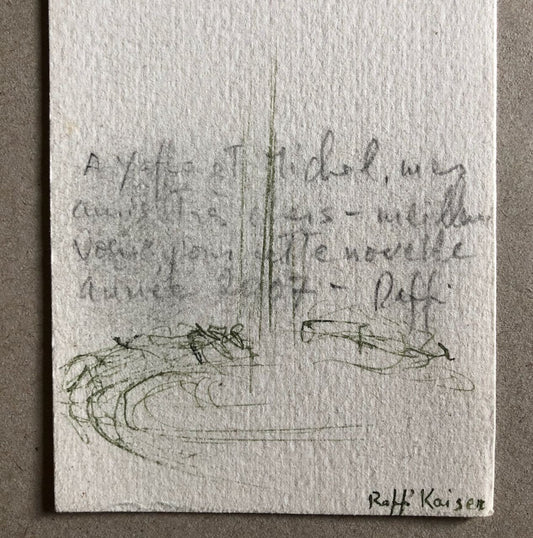 A et Michel, mes
amis très chers – meilleurs
voeux pour cette nouvelle
année 2007 – Raffi
Raffi Kaiser